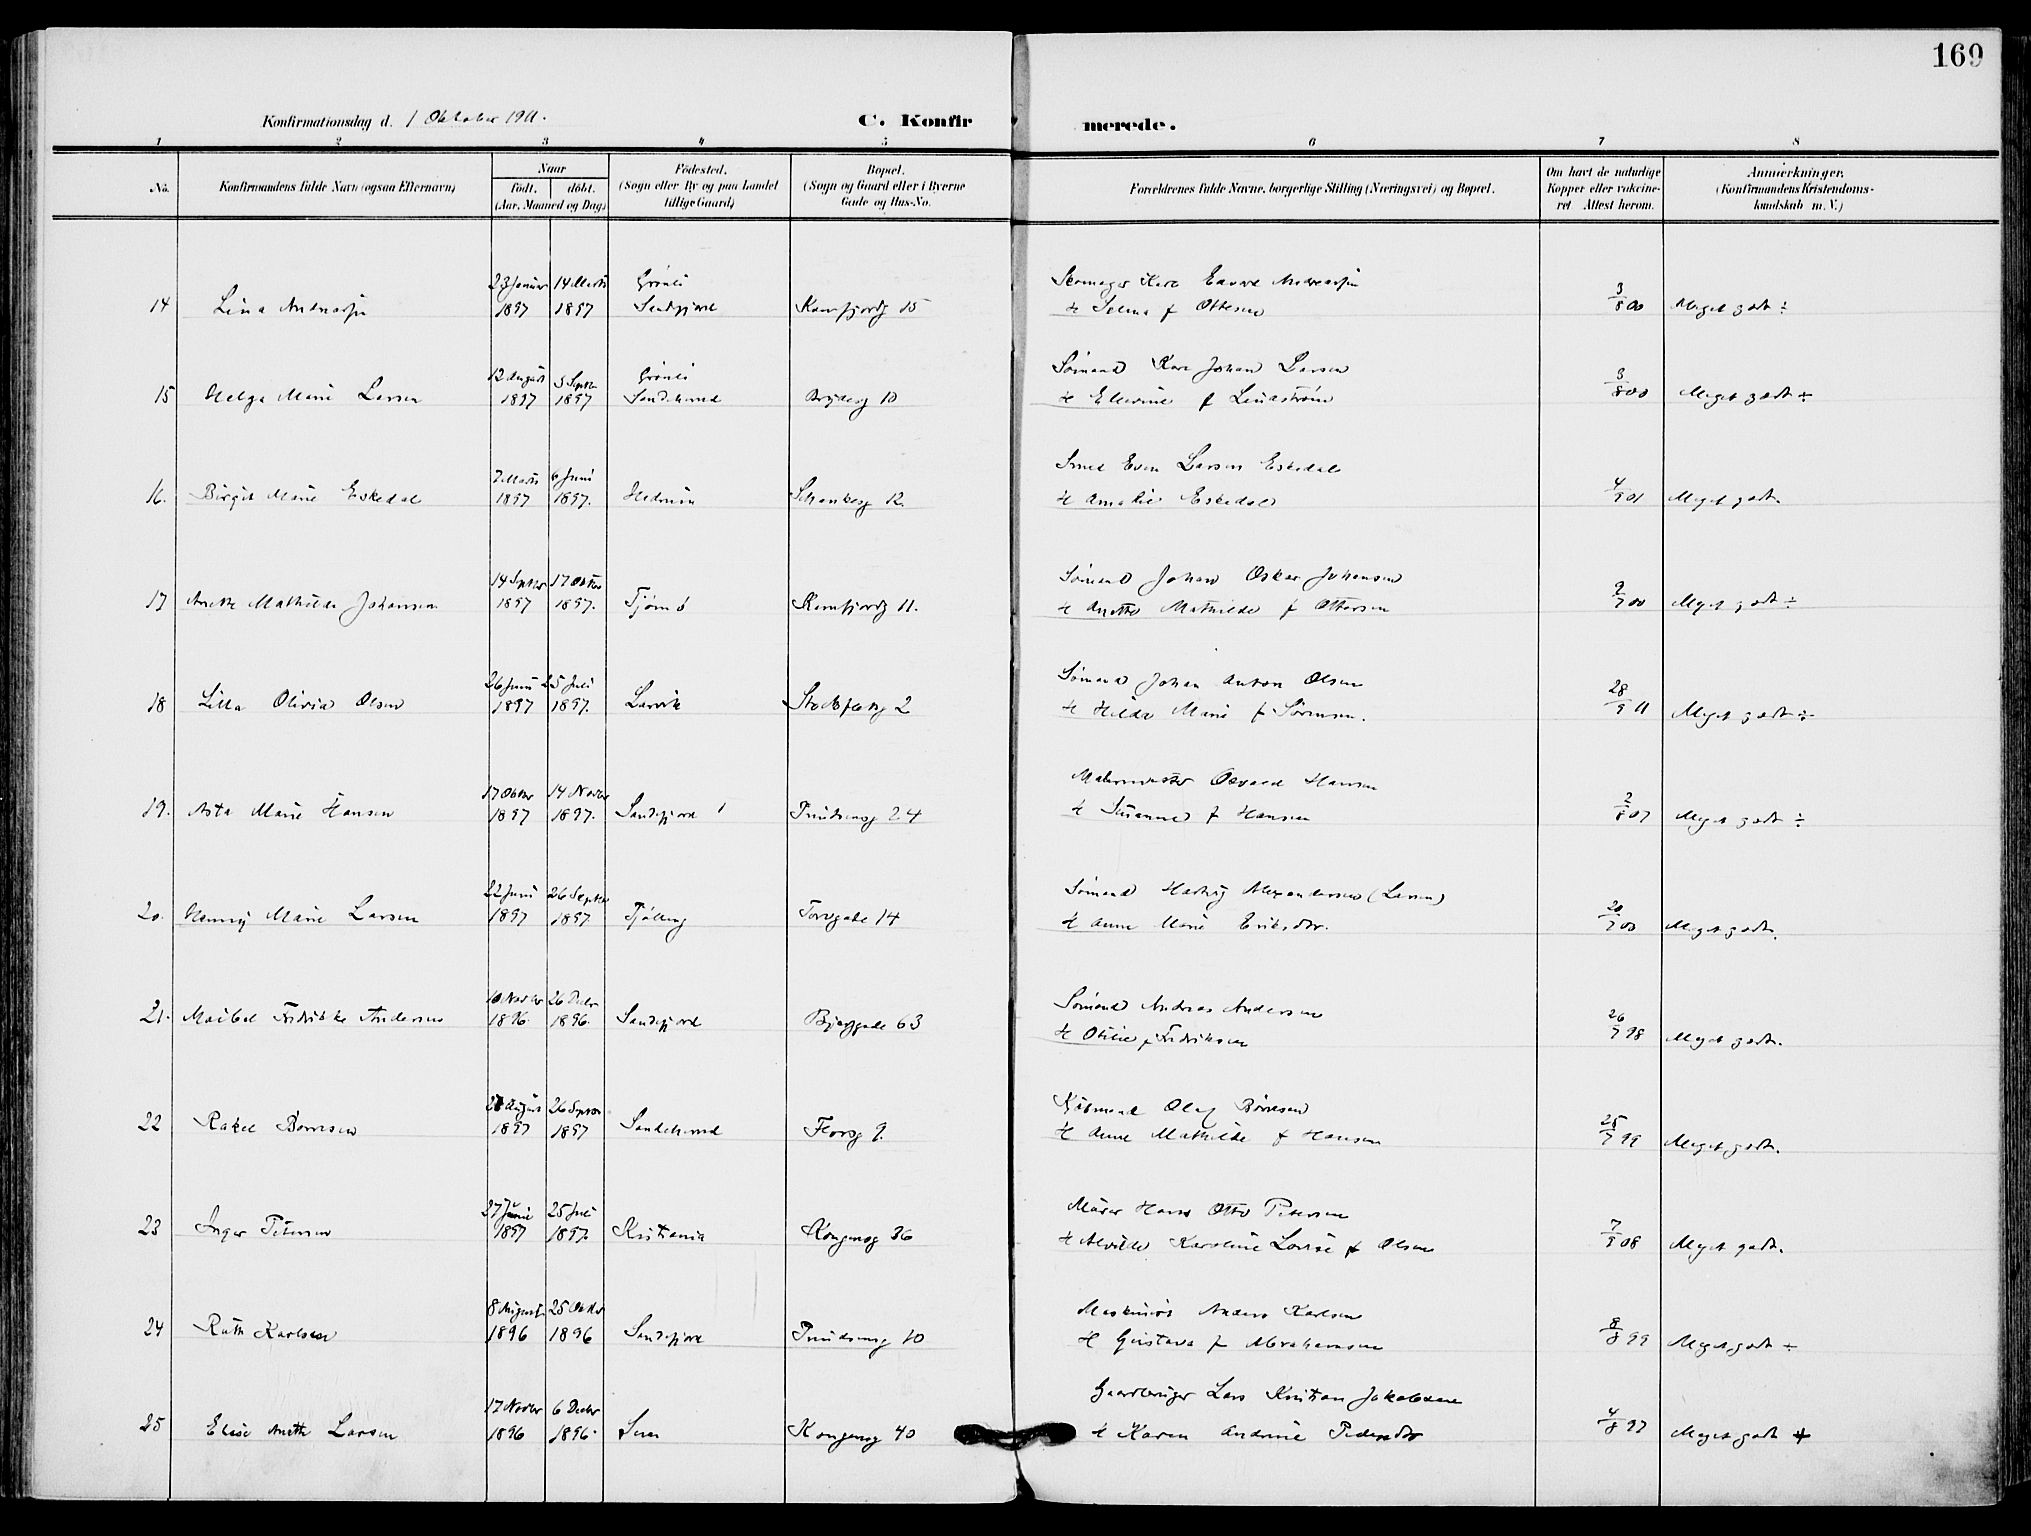 169
Konfirmationsdag d. 1 Oktober 1911.
C. Konfirmerede.
1 2 3 4 5 6 7 8
No.
Konfirmandens fulde Navn (ogsaa Efternavn)
Naar
født. døbt.
(Aar, Maaned og Dag)
Fødested.
(Sogn eller By og paa Landet
tillige Gaard)
Bopæl.
(Sogn og Gaard eller i Byerne
Gade og Hus-No.
Forældrenes fulde Navne, borgerlige Stilling (Næringsvei) og Bopæl.
Om havt de naturlige
Kopper eller vakcine-
ret Attest herom.
Anmærkninger.
(Konfirmandens Kristendoms-
kundskab m. V.)
23 Januar 14 Marts Grönli Andreassen
14 Lina Andreassen 1897 1897 Sandefjord Kamfjordg 15 H Selma f Ottesen 3/8 00 Meget godt ÷
12 August 5 Septbr Grönli Sømand Karl Johan Larsen
15 Helga Marie Larsen 1897 1897 Sandeherred Brydesg 10 H Ellevine f Lindstrøm 3/8 00 Meget godt ÷
7 Marts 6 Juni Smed Even Larsen Eskedal
16. Birgit Marie Eskedal 1897 1897. Hedrum 12. H Amalie Eskedal 4/9 01 Meget godt.
14 Septbr 17 Oktbr Sømand Johan Oskar Johansen
17 Anette Mathilde Johansen 1897 1897. Tjømø Kamfjordg 11. H Anette Mathilde f Ottersen 9/7 00 Meget godt ÷
26 Juni 25 Juli Sømand Johan Anton Olsen
18 Lilla Olivia Olsen 1897 1897. Larvik 2 H Hilda Marie f Sørensen. 28/9 11 Meget godt ÷
17 Oktbr 14 Novbr Malermester Hansen
19. Asta Marie Hansen 1897 1897. Sandefjord Prindsensg 24 H Susanne f Hansen 2/8 07 Meget godt ÷
22 Juni 26 Septbr Sømand Hartvig Alexandersen (Larsen)
20. Nanny Marie Larsen 1897 1897. Tjølling Torvgade 14 H Anne Marie Eriksdtr. 20/7 00 Meget godt.
10 Novbr 26 Decbr Sømand Andreas Andersen
21. Fredrikke Andersen 1896 1896. Sandefjord Bjerggade 63 H Otilie f Fredriksen 26/7 98 Meget godt.
August 26 Septbr Olaf Børresen
22 Rakel Børresen 1897 1897 Sandeherred 9. H Anne Mathilde f Hansen 25/7 99 Meget godt.
27 Juni 25 Juli Murer Hans Otto Petersen
23 Inger Petersen 1897 1897. Kristiania Kongensg 36 H Alvilde Karoline Lovise f Olsen 7/8 08 Meget godt.
8 August 25 Oktbr Maskinist Anders Karlsen
24 Ruth Karlsen 1896 1896 Sandefjord Prindsensg 10 H Gustava f Abrahamsen 8/8 99 Meget godt ÷
17 Novbr 6 Decbr Gaardbruger Lars Kristian Jakobsen
25 Elise Anette Larsen 1896 1896. Sem Kongensg 40 H Karen Andrine Pedersdtr 4/8 97 Meget godt